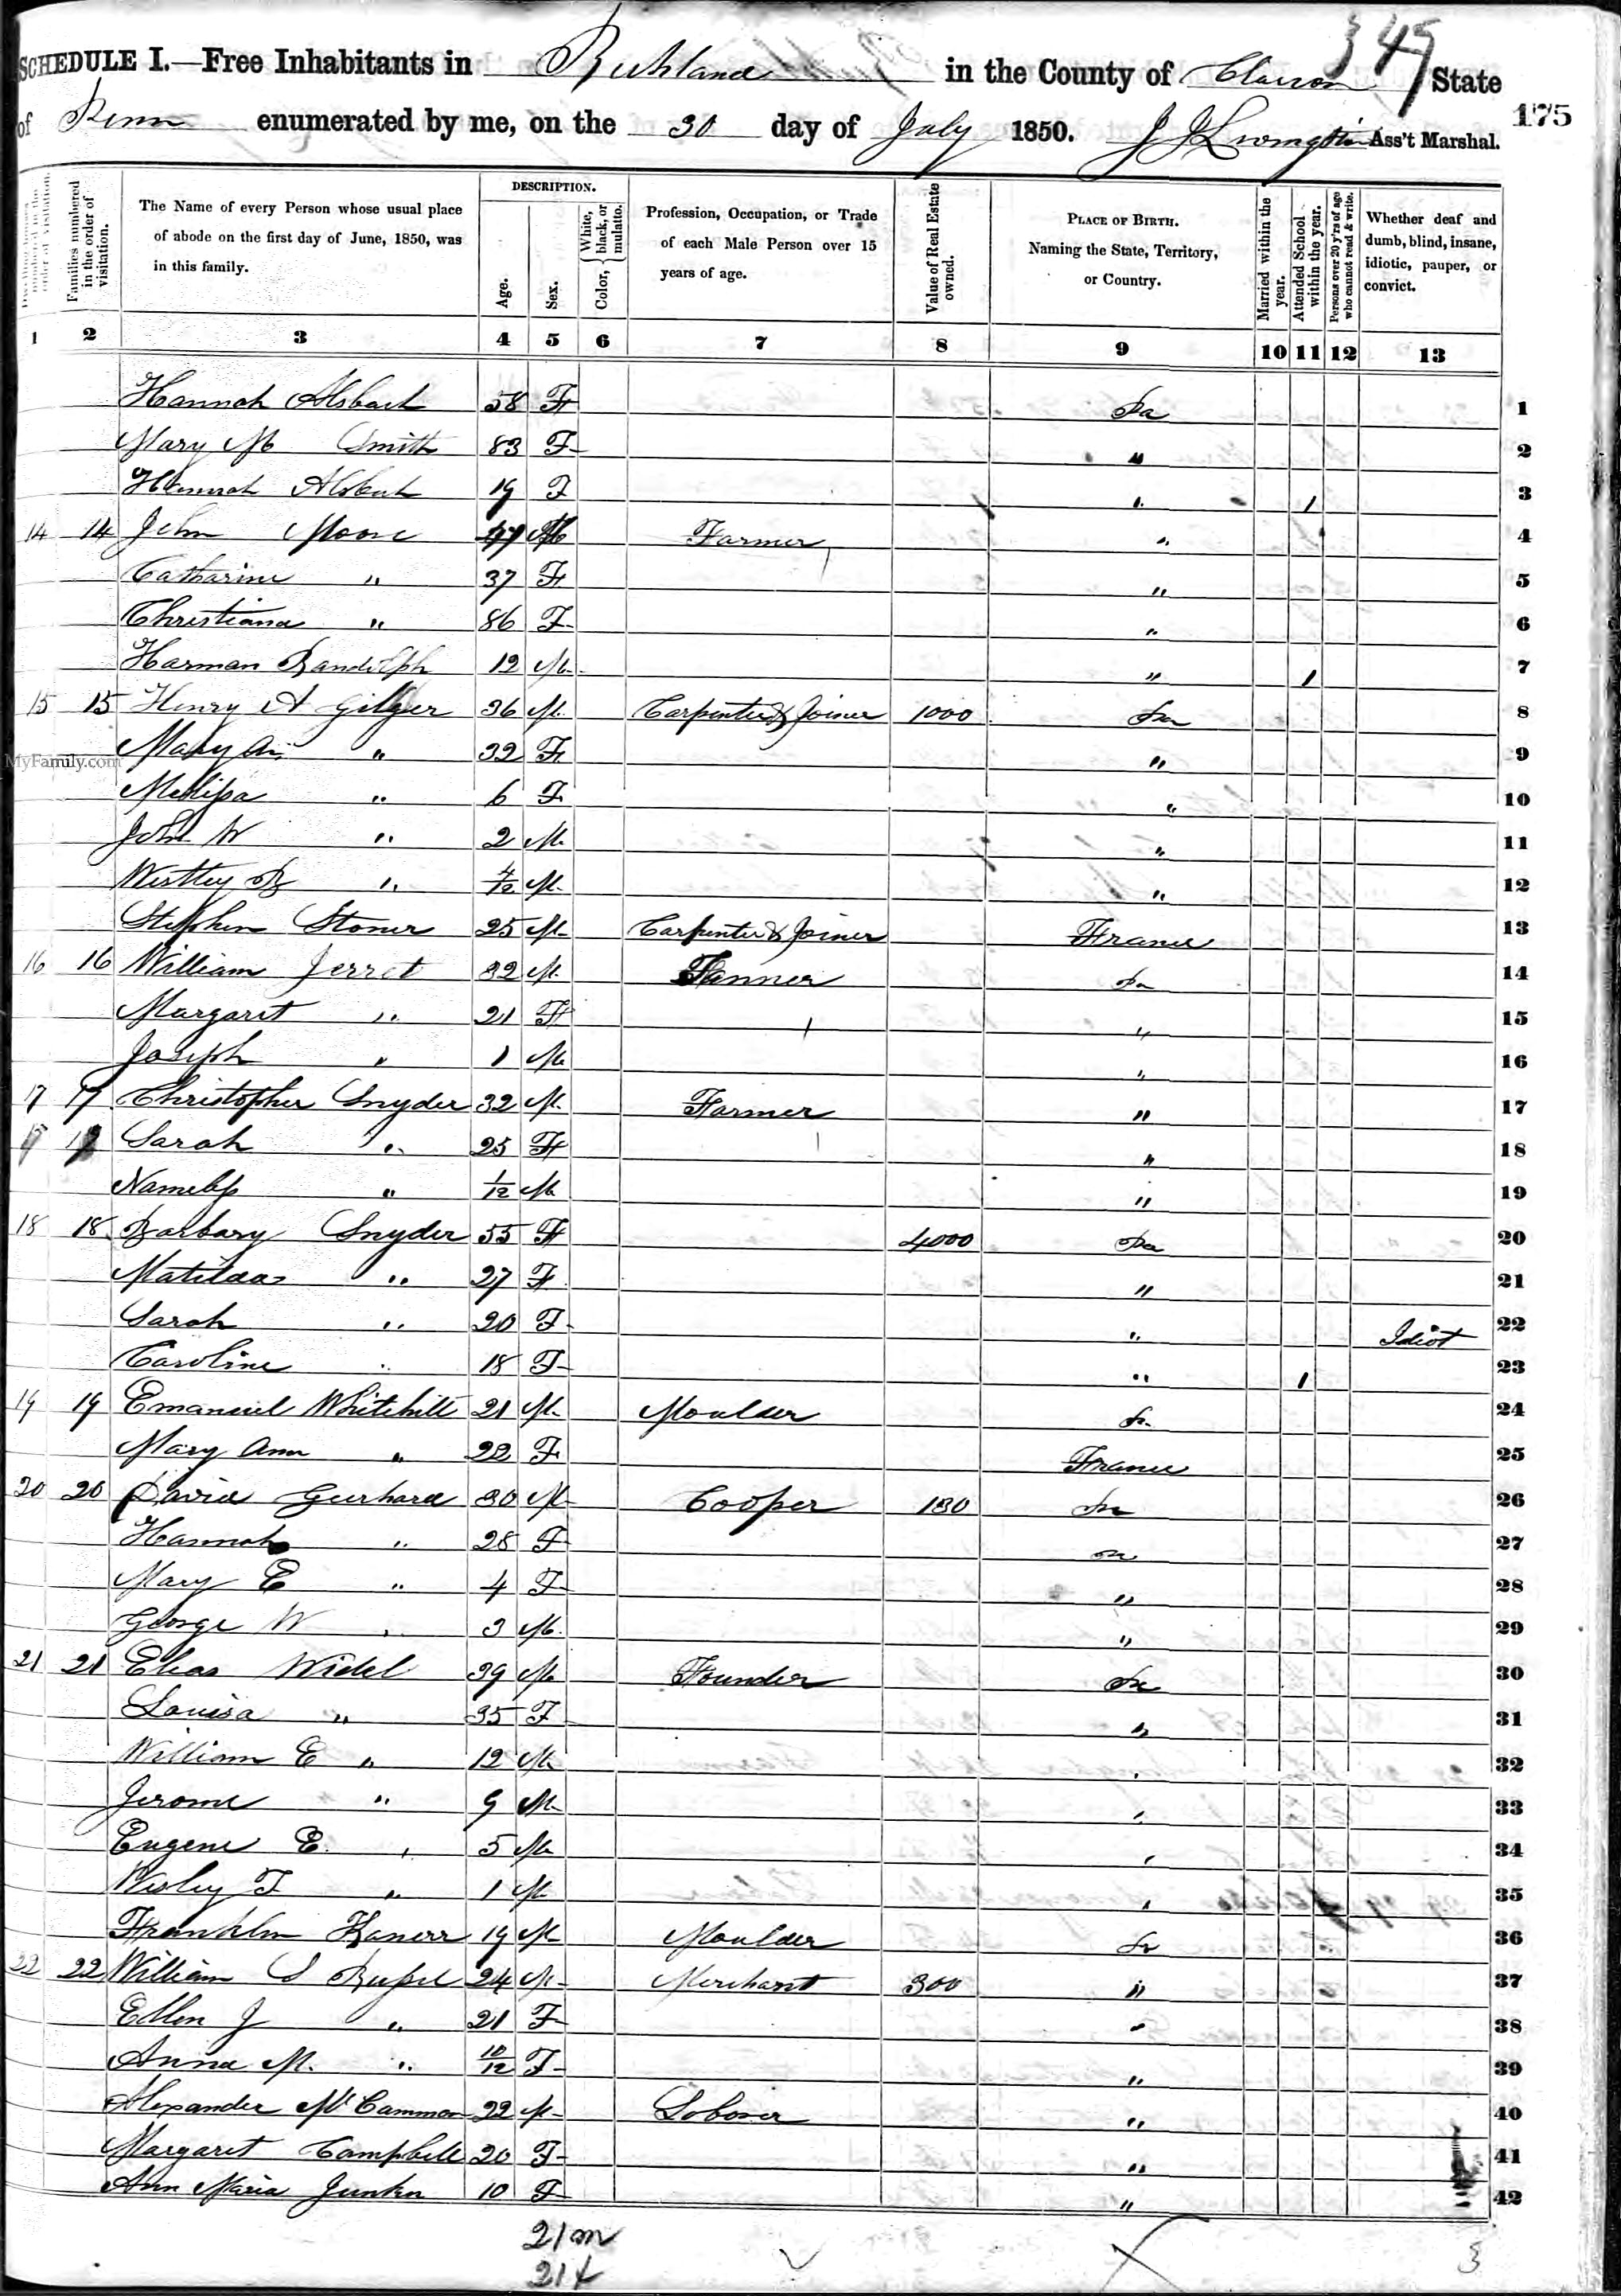 349
SCHEDULE I.—Free Inhabitants in Richland in the County of Clarion State
of Penn enumerated by me, on the 30 day of July 1850. J J Livingston Ass't Marshal.
175
Families numbered in the order of visitation.
The Name of every Person whose usual place of abode on the first day of June, 1850, was in this family.
DESCRIPTION.
Age.
Sex.
Color, { White, black, or mulatto.
Profession, Occupation, or Trade of each Male Person over 15 years of age.
Value of Real Estate owned.
PLACE OF BIRTH. Naming the State, Territory, or Country.
Married within the year.
Attended School within the year.
Persons over 20 y'rs of age who cannot read & write.
Whether deaf and dumb, blind, insane, idiotic, pauper, or convict.
1 2 3 4 5 6 7 8 9 10 11 12 13
Hannah Alsbach 58 F Pa 1
Mary M Smith 83 F " 2
Hannah Alsbach 19 F " 1 3
14 14 John Moore 47 M Farmer " 4
Catharine " 37 F " 5
Christiana " 86 F " 6
Harman Randolph 12 M " 1 7
15 15 Henry A Gilger 36 M Carpenter & Joiner 1000 Pa 8
Mary An " 32 F " 9
MyFamily.com
Melissa " 6 F " 10
John W " 2 M " 11
Westley B " 4/12 M " 12
Stephen Stoner 25 M Carpenter & Joiner France 13
16 16 William Jerret 32 M Tanner Pa 14
Margaret " 21 F " 15
Joseph " 1 M " 16
17 17 Christopher Snyder 32 M Farmer " 17
Sarah " 25 F " 18
Nameless " 1/12 M " 19
18 18 Barbary Snyder 55 F 4000 Pa 20
Matilda " 27 F " 21
Sarah " 20 F " Idiot 22
Caroline " 18 F " 1 23
19 19 Emanuel Whitehill 21 M Moulder Pa 24
Mary Ann " 22 F France 25
20 20 David Gearhard 30 M Cooper 130 Pa 26
Hannah " 28 F Pa 27
Mary E " 4 F " 28
George W " 3 M " 29
21 21 Elias Widel 39 M Founder Pa 30
Louisa " 35 F " 31
William E " 12 M " 32
Jerome " 9 M " 33
Eugene E. " 5 M " 34
Wesley F " 1 M " 35
Franklin 19 M Moulder Pa 36
22 22 William S Russel 24 M Merchant 300 " 37
Ellen J " 21 F " 38
Anna M. " 10/12 F " 39
Alexander McCammon 22 M Laborer " 40
Margaret Campbell 20 F " 41
Ann Maria Junkin 10 F " 42
21 m
21 f
3